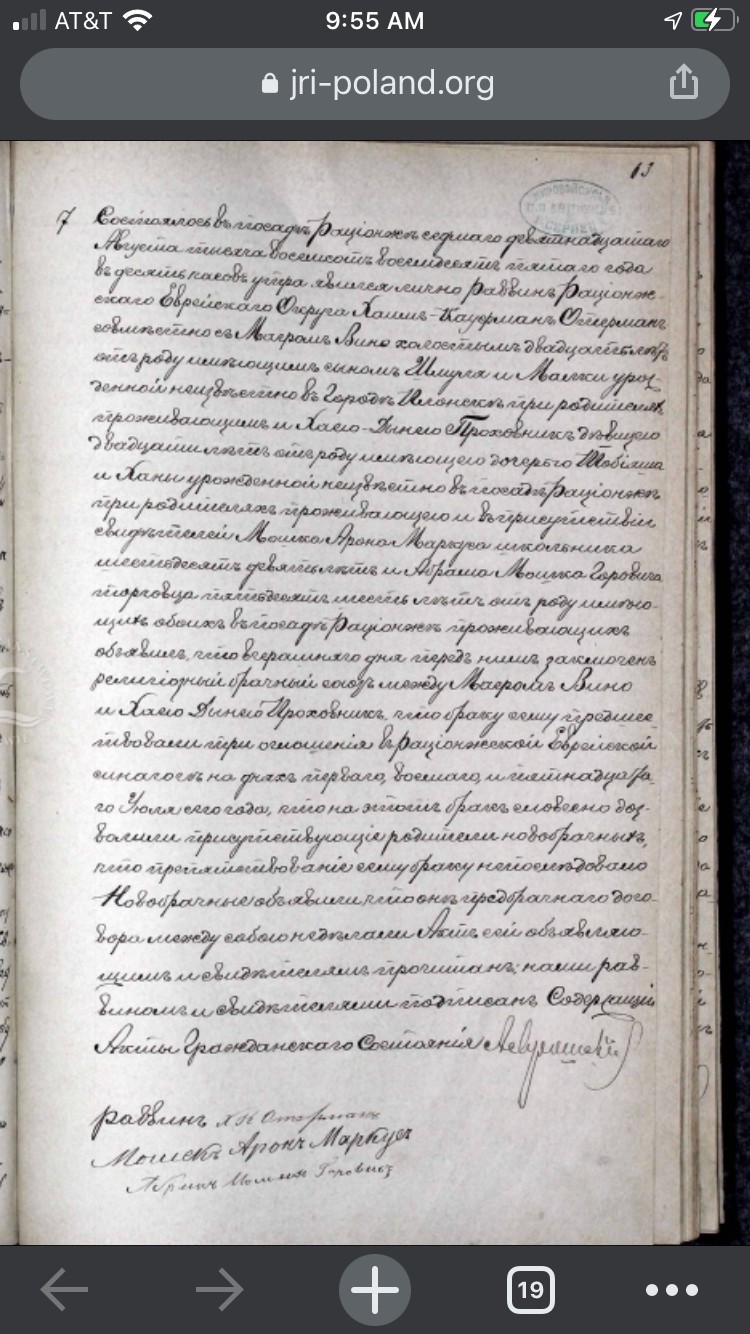 AT&T 9:55 AM
jri-poland.org
13
7 Состоялось въ посадѣ Рацiонжѣ седмаго девятнадцатаго
Августа тысяча восемсотъ восемдесятъ пятаго года
въ десять часовъ утра явился лично Раввинъ Рацiонж-
скаго Еврейскаго Округа Хаимъ-Кауфманъ Оттерманъ
совмѣстно съ Маеромъ Вино холостымъ двадцать лѣтъ
отъ роду имѣющимъ сыномъ Шмуля и Малки урож-
денной неизвѣстно въ Городѣ Плонскѣ при родителяхъ
проживающимъ и Хаею-Динею Проховникъ дѣвицею
двадцати лѣтъ отъ роду имѣющею дочерью
и Ханы урожденной неизвѣстно въ посадѣ Рацiонжѣ
при родителяхъ проживающею и въ присутствiи
свидѣтелей Мошка Арона Маркуса школьника
шестьдесятъ девять лѣтъ и Абрама Мошка Горовича
торговца пятьдесятъ шесть лѣтъ отъ роду имѣю-
щихъ обоихъ въ посадѣ Рацiонжѣ проживающихъ
объявилъ, что вчерашняго дня передъ нимъ заключенъ
религiозный брачный союзъ между Маеромъ Вино
и Хаею Динею Проховникъ, что браку сему предшес-
твовали три оглашенiя въ Рацiонжской Еврейской
синагогѣ на дняхъ перваго, восмаго, и пятнадцата-
го Iюля сего года, что на этотъ бракъ словесно доз-
волили присутствующiе родители новобрачныхъ,
что препятствованiе сему браку непослѣдовало
Новобрачные объявили что онѣ предбрачнаго дого-
вора между собою недѣлали Актъ сей объявляю-
щимъ и свидѣтелямъ прочитанъ; нами рав-
виномъ и свидѣтелями подписанъ Содержащiй
Акты Гражданскаго Состоянiя
Раввинъ Х К Оттерманъ
Мошекъ Аронъ Маркусъ
Абрамъ Мошекъ Горовичъ
19